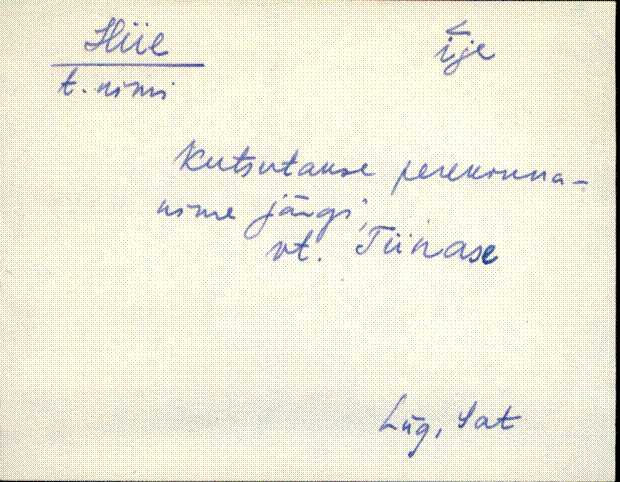 Hiie īje
t. nimi
Kutsutakse perekonna-
nime järgi,
vt. Tiinase
Lüg, Sat